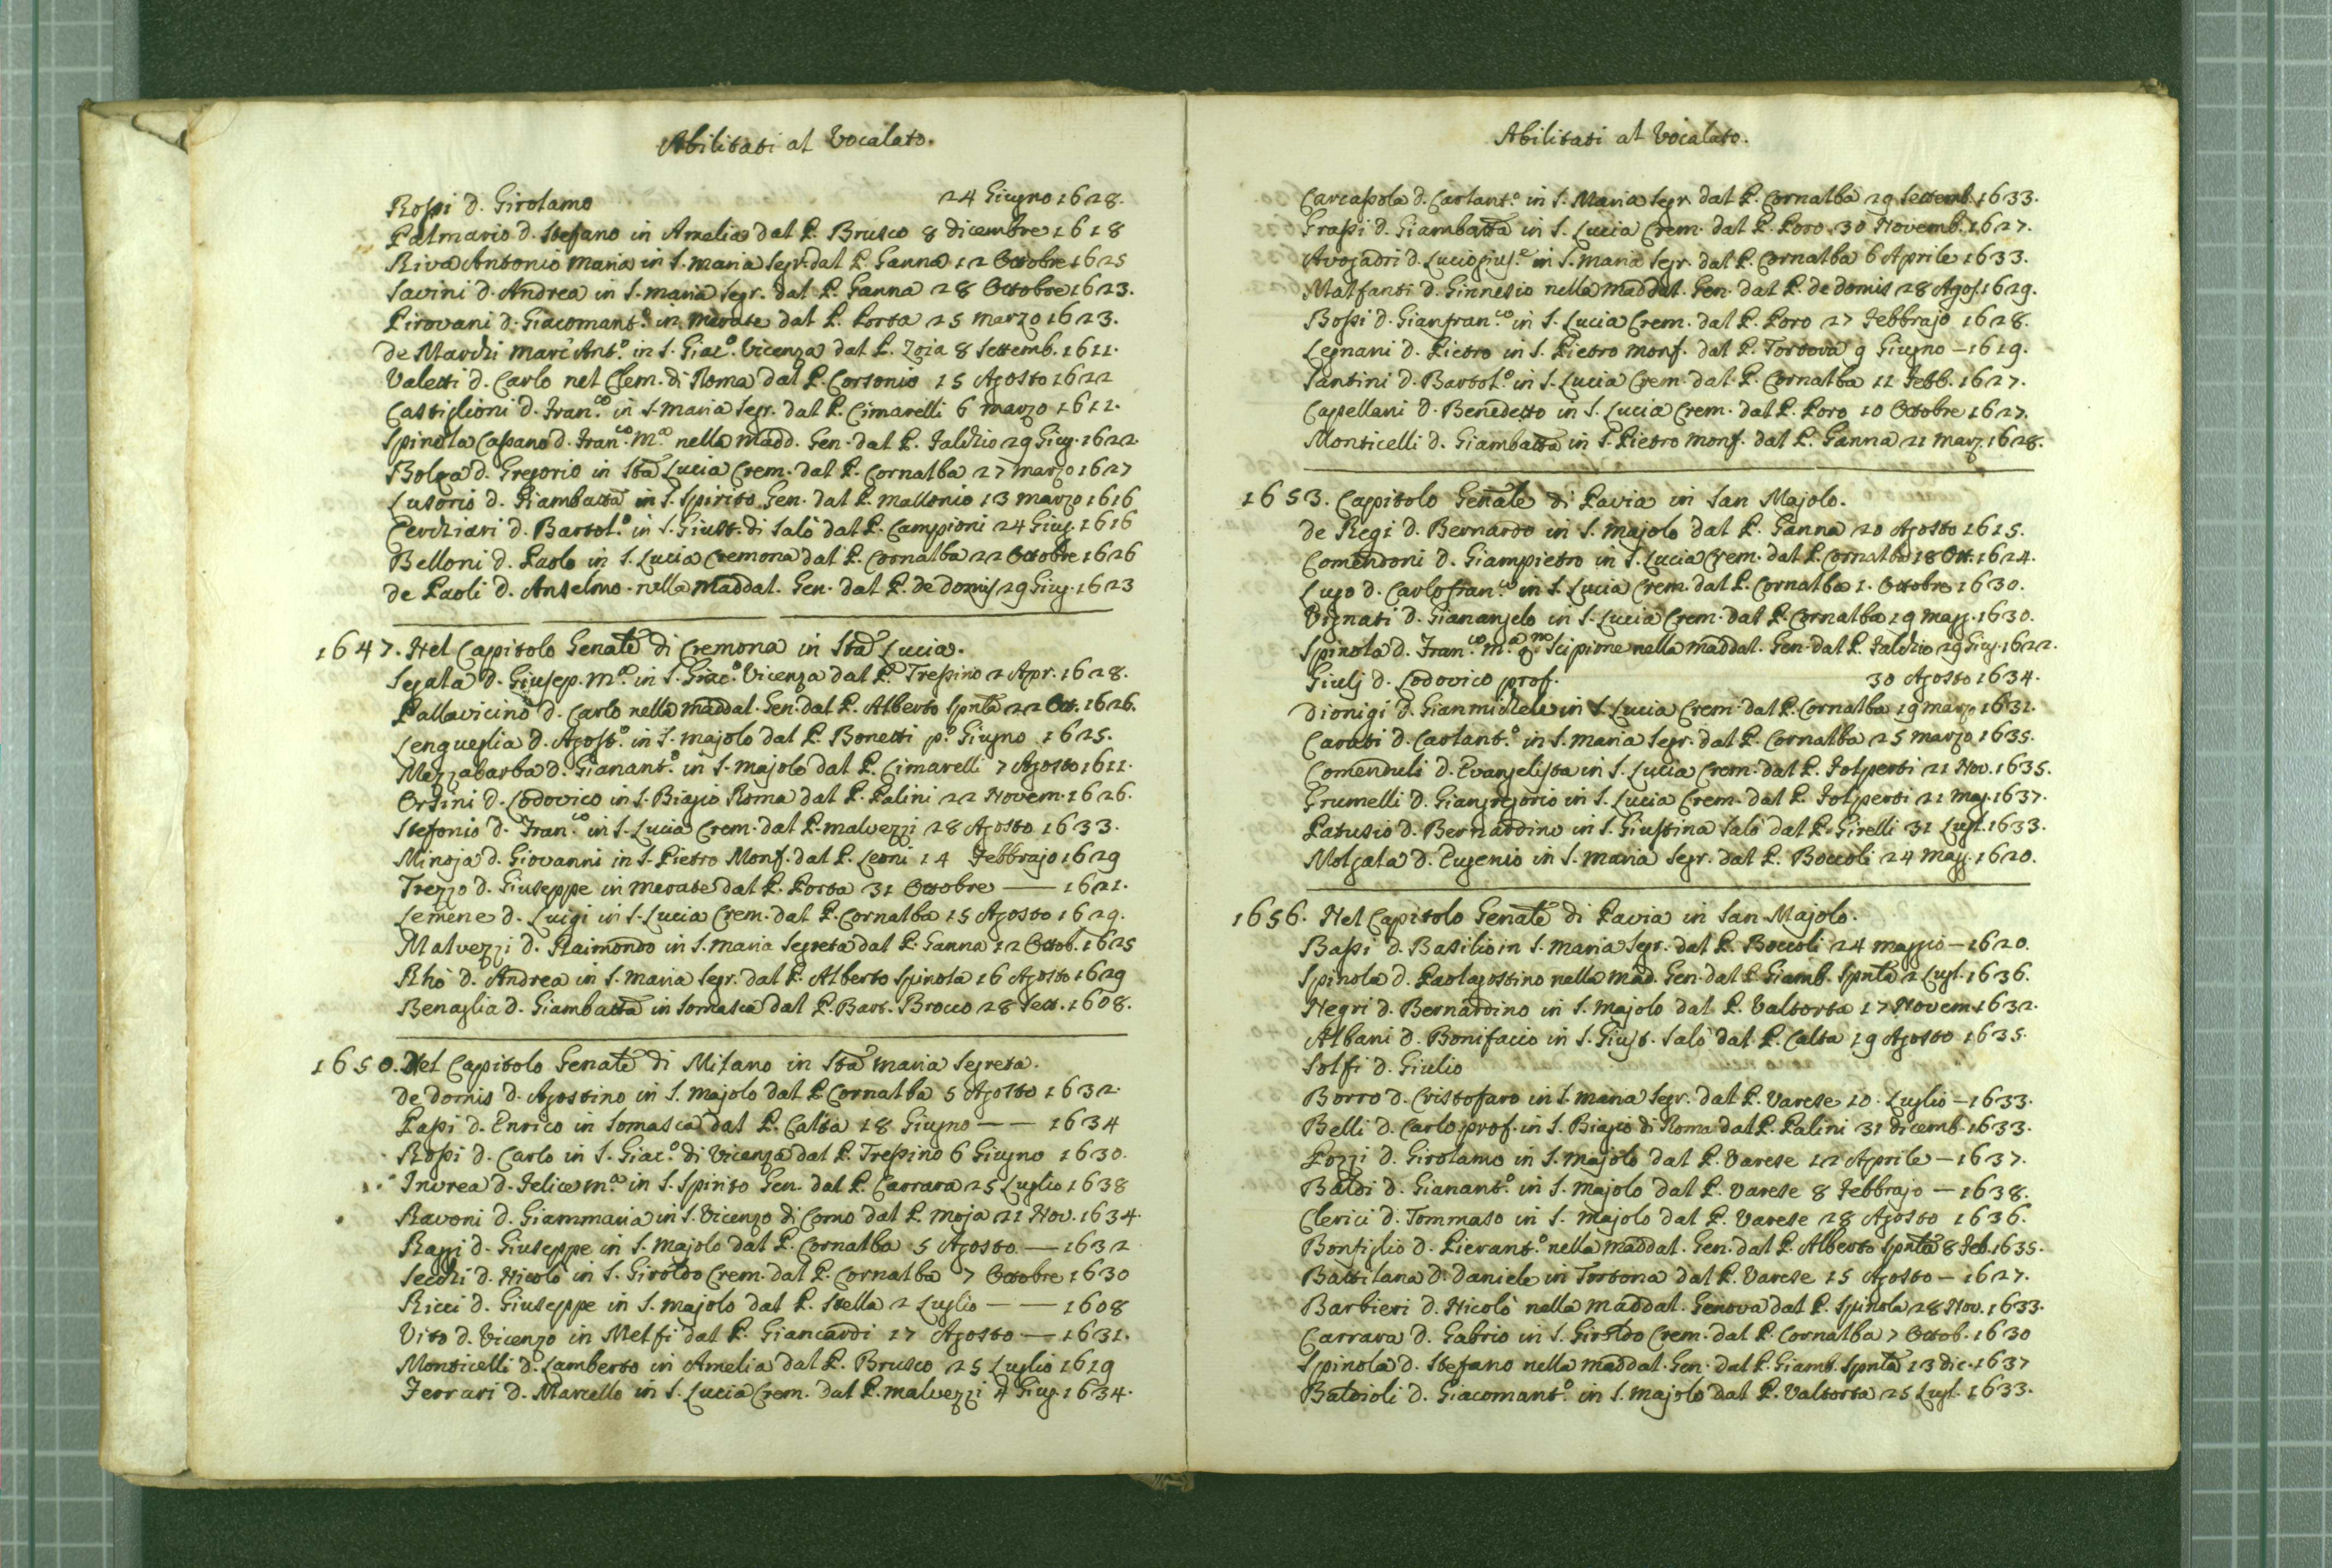 Abilitati al Vocalato.
Rossi d. Girolamo 24 Giugno 1628.
Palmario d. Stefano in Amelia dal P. Brusco 8 dicembre 1618
Riva Antonio Maria in S. Maria Segr. dal P. Ganna 12 Ottobre 1625
Savini d. Andrea in S. Maria Segr. dal P. Ganna 28 Ottobre 1623.
Pirovani d. Giacomant.º in Merate dal P. Porta 25 Marzo 1623.
de Marchi Marc'Ant.º in S. Giac.º Vicenza dal P. Zoia 8 Settemb. 1611.
Valetti d. Carlo nel Clem. di Roma dal P. Corsonio 15 Agosto 1622
Castiglioni d. Fran.co in S. Maria Segr. dal P. Cimarelli 6 Marzo 1611.
Spinola Cassano d. Fran.co M.a nella Madd. Gen. dal P. Falchio 29 Giug. 1622
Bolga d. Gregorio in Sta Lucia Crem. dal P. Cornalba 27 Marzo 1627
Lusorio d. Giambatta in S. Spirito Gen. dal P. Mallonio 13 Marzo 1616
Cerchiari d. Bartol.º in S. Giust. di Salò dal P. Campioni 24 Giug. 1616
Belloni d. Paolo in S. Lucia Cremona dal P. Cornalba 22 Ottobre 1626
de Paoli d. Anselmo nella Maddal. Gen. dal P. de Domis 29 Giug. 1623
1647. Nel Capitolo Genale di Cremona in Sta Lucia.
Segala d. Giusep. M.a in S. Giac.º Vicenza dal P. Tressino 2 Apr. 1628.
Pallavicino d. Carlo nella Maddal. Gen. dal P. Alberto Spnla 22 Ott. 1626.
Lengueglia d. Agost.º in S. Majolo dal P. Bonetti p.º Giugno 1625.
Mezzabarba d. Gianant.º in S. Majolo dal P. Cimarelli 7 Agosto 1611.
Orsini d. Lodovico in S. Biagio Roma dal P. Palini 22 Novem. 1626.
Stefonio d. Fran.co in S. Lucia Crem. dal P. Malvezzi 28 Agosto 1633.
Minoja d. Giovanni in S. Pietro Monf. dal P. Leoni 14 Febbrajo 1629
Trezzo d. Giuseppe in Merate dal P. Porta 31 Ottobre — 1621.
Lemene d. Luigi in S. Lucia Crem. dal P. Cornalba 15 Agosto 1629.
Malvezzi d. Raimondo in S. Maria Segreta dal P. Ganna 12 Ottob. 1625
Rhò d. Andrea in S. Maria Segr. dal P. Alberto Spinola 16 Agosto 1629
Benaglia d. Giambatta in Somasca dal P. Bart. Brocco 28 Sett. 1608.
1650. Nel Capitolo Genale di Milano in Sta Maria Segreta.
de Domis d. Agostino in S. Majolo dal P. Cornalba 5 Agosto 1632.
Passi d. Enrico in Somasca dal P. Calta 18 Giugno — — 1634
Rossi d. Carlo in S. Giac.º di Vicenza dal P. Tressino 6 Giugno 1630.
Invrea d. Felice M.a in S. Spirito Gen. dal P. Carrara 25 Luglio 1638
Ravoni d. Giammaria in S. Vicenzo di Como dal P. Moja 21 Nov. 1634.
Raggi d. Giuseppe in S. Majolo dal P. Cornalba 5 Agosto — 1632
Secchi d. Nicolò in S. Giroldo Crem. dal P. Cornalba 7 Ottobre 1630
Ricci d. Giuseppe in S. Majolo dal P. Stella 2 Luglio — — 1608
Vito d. Vicenzo in Melfi dal P. Giancardi 17 Agosto — 1631.
Monticelli d. Lamberto in Amelia dal P. Brusco 25 Luglio 1619
Ferrari d. Marcello in S. Lucia Crem. dal P. Malvezzi 4 Giug. 1634.
Abilitati al Vocalato.
Carcassola d. Carlant.º in S. Maria Segr. dal P. Cornalba 29 Settemb. 1633.
Grassi d. Giambatta in S. Lucia Crem. dal P. Poro 30 Novemb. 1627.
Avogadri d. Luciogius.e in S. Maria Segr. dal P. Cornalba 6 Aprile 1633.
Malfanti d. Ginnesio nella Maddal. Gen. dal P. de Domis 28 Agos. 1629.
Bossi d. Gianfran.co in S. Lucia Crem. dal P. Poro 27 Febbrajo 1628.
Legnani d. Pietro in S. Pietro Monf. dal P. Tortora 9 Giugno — 1619.
Santini d. Bartol.º in S. Lucia Crem. dal P. Cornalba 11 Febb. 1627.
Capellani d. Benedetto in S. Lucia Crem. dal P. Poro 10 Ottobre 1627.
Monticelli d. Giambatta in S. Pietro Monf. dal P. Ganna 21 Marz. 1628.
1653. Capitolo Genale di Pavia in San Majolo.
de Regi d. Bernardo in S. Majolo dal P. Ganna 20 Agosto 1615.
Comendoni d. Giampietro in S. Lucia Crem. dal P. Cornalba 18 Ott. 1624.
Lugo d. Carlofran.co in S. Lucia Crem. dal P. Cornalba 1. Ottobre 1630.
Vignati d. Gianangelo in S. Lucia Crem. dal P. Cornalba 19 Magg. 1630.
Spinola d. Fran.co M.a qm Scipione nella Maddal. Gen. dal P. Falchio 29 Giug. 1622.
Giulj d. Lodovico prof. 30 Agosto 1634.
Dionigi d. Gianmichele in S. Lucia Crem. dal P. Cornalba 19 Marzo 1631.
Carati d. Carlant.º in S. Maria Segr. dal P. Cornalba 25 Marzo 1635.
Comenduli d. Evangelista in S. Lucia Crem. dal P. Folperti 21 Nov. 1635.
Grumelli d. Giangregorio in S. Lucia Crem. dal P. Folperti 21 Mag. 1637.
Patusio d. Bernardino in S. Giustina Salò dal P. Girelli 31 Lugl. 1633.
Molgata d. Eugenio in S. Maria Segr. dal P. Boccoli 24 Magg. 1620.
1656. Nel Capitolo Genale di Pavia in San Majolo.
Bassi d. Basilio in S. Maria Segr. dal P. Boccoli 24 Maggio — 1620.
Spinola d. Paolagostino nella Mad. Gen. dal P. Giamb. Spnla 2 Lugl. 1636.
Negri d. Bernardino in S. Majolo dal P. Valtorta 17 Novem. 1632.
Albani d. Bonifacio in S. Giust. Salò dal P. Calta 19 Agosto 1635.
Solfi d. Giulio
Borro d. Cristofaro in S. Maria Segr. dal P. Varese 10. Luglio — 1633.
Belli d. Carlo prof. in S. Biagio di Roma dal P. Palini 31 dicemb. 1633.
Pozzi d. Girolamo in S. Majolo dal P. Varese 12 Aprile — 1637.
Baldi d. Gianant.º in S. Majolo dal P. Varese 8 Febbrajo — 1638.
Clerici d. Tommaso in S. Majolo dal P. Varese 28 Agosto 1636.
Bonfiglio d. Pierant.º nella Maddal. Gen. dal P. Alberto Spnla 8 Feb. 1635.
Battilana d. Daniele in Tortona dal P. Varese 15 Agosto — 1627.
Barbieri d. Nicolò nella Maddal. Genova dal P. Spinola 28 Nov. 1633.
Carrara d. Gabrio in S. Giroldo Crem. dal P. Cornalba 7 Ottob. 1630
Spinola d. Stefano nella Maddal. Gen. dal P. Giamb. Spnla 13 dic. 1637
Baldioli d. Giacomant.º in S. Majolo dal P. Valtorta 25 Lugl. 1633.